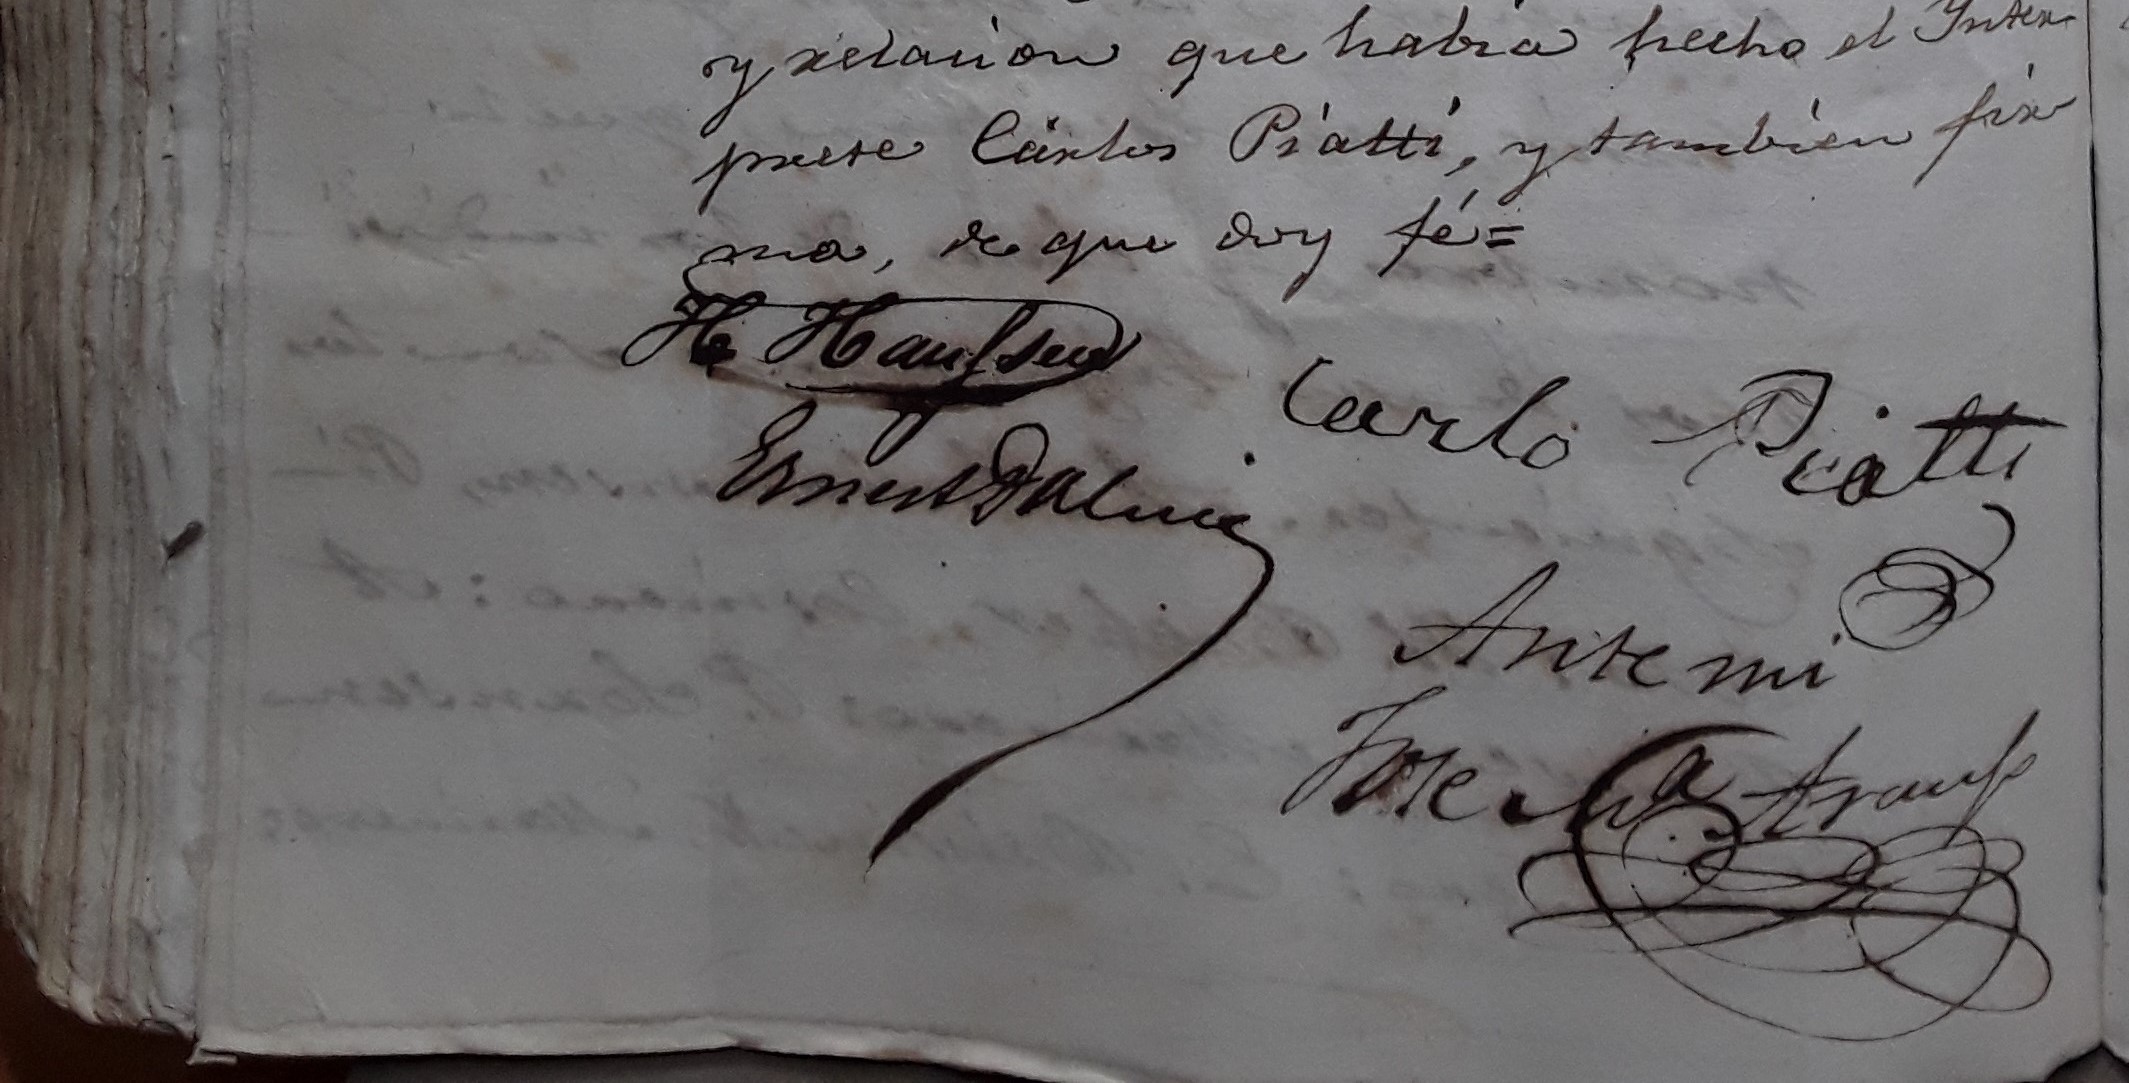 y relacion que habia hecho el Inter-
prete Cárlos Piatti, y tambien fir
ma, de que doy fé=
H. Haufsen
Carlo Piatti
Ernest
Ante mi
Jose Ma Araujo